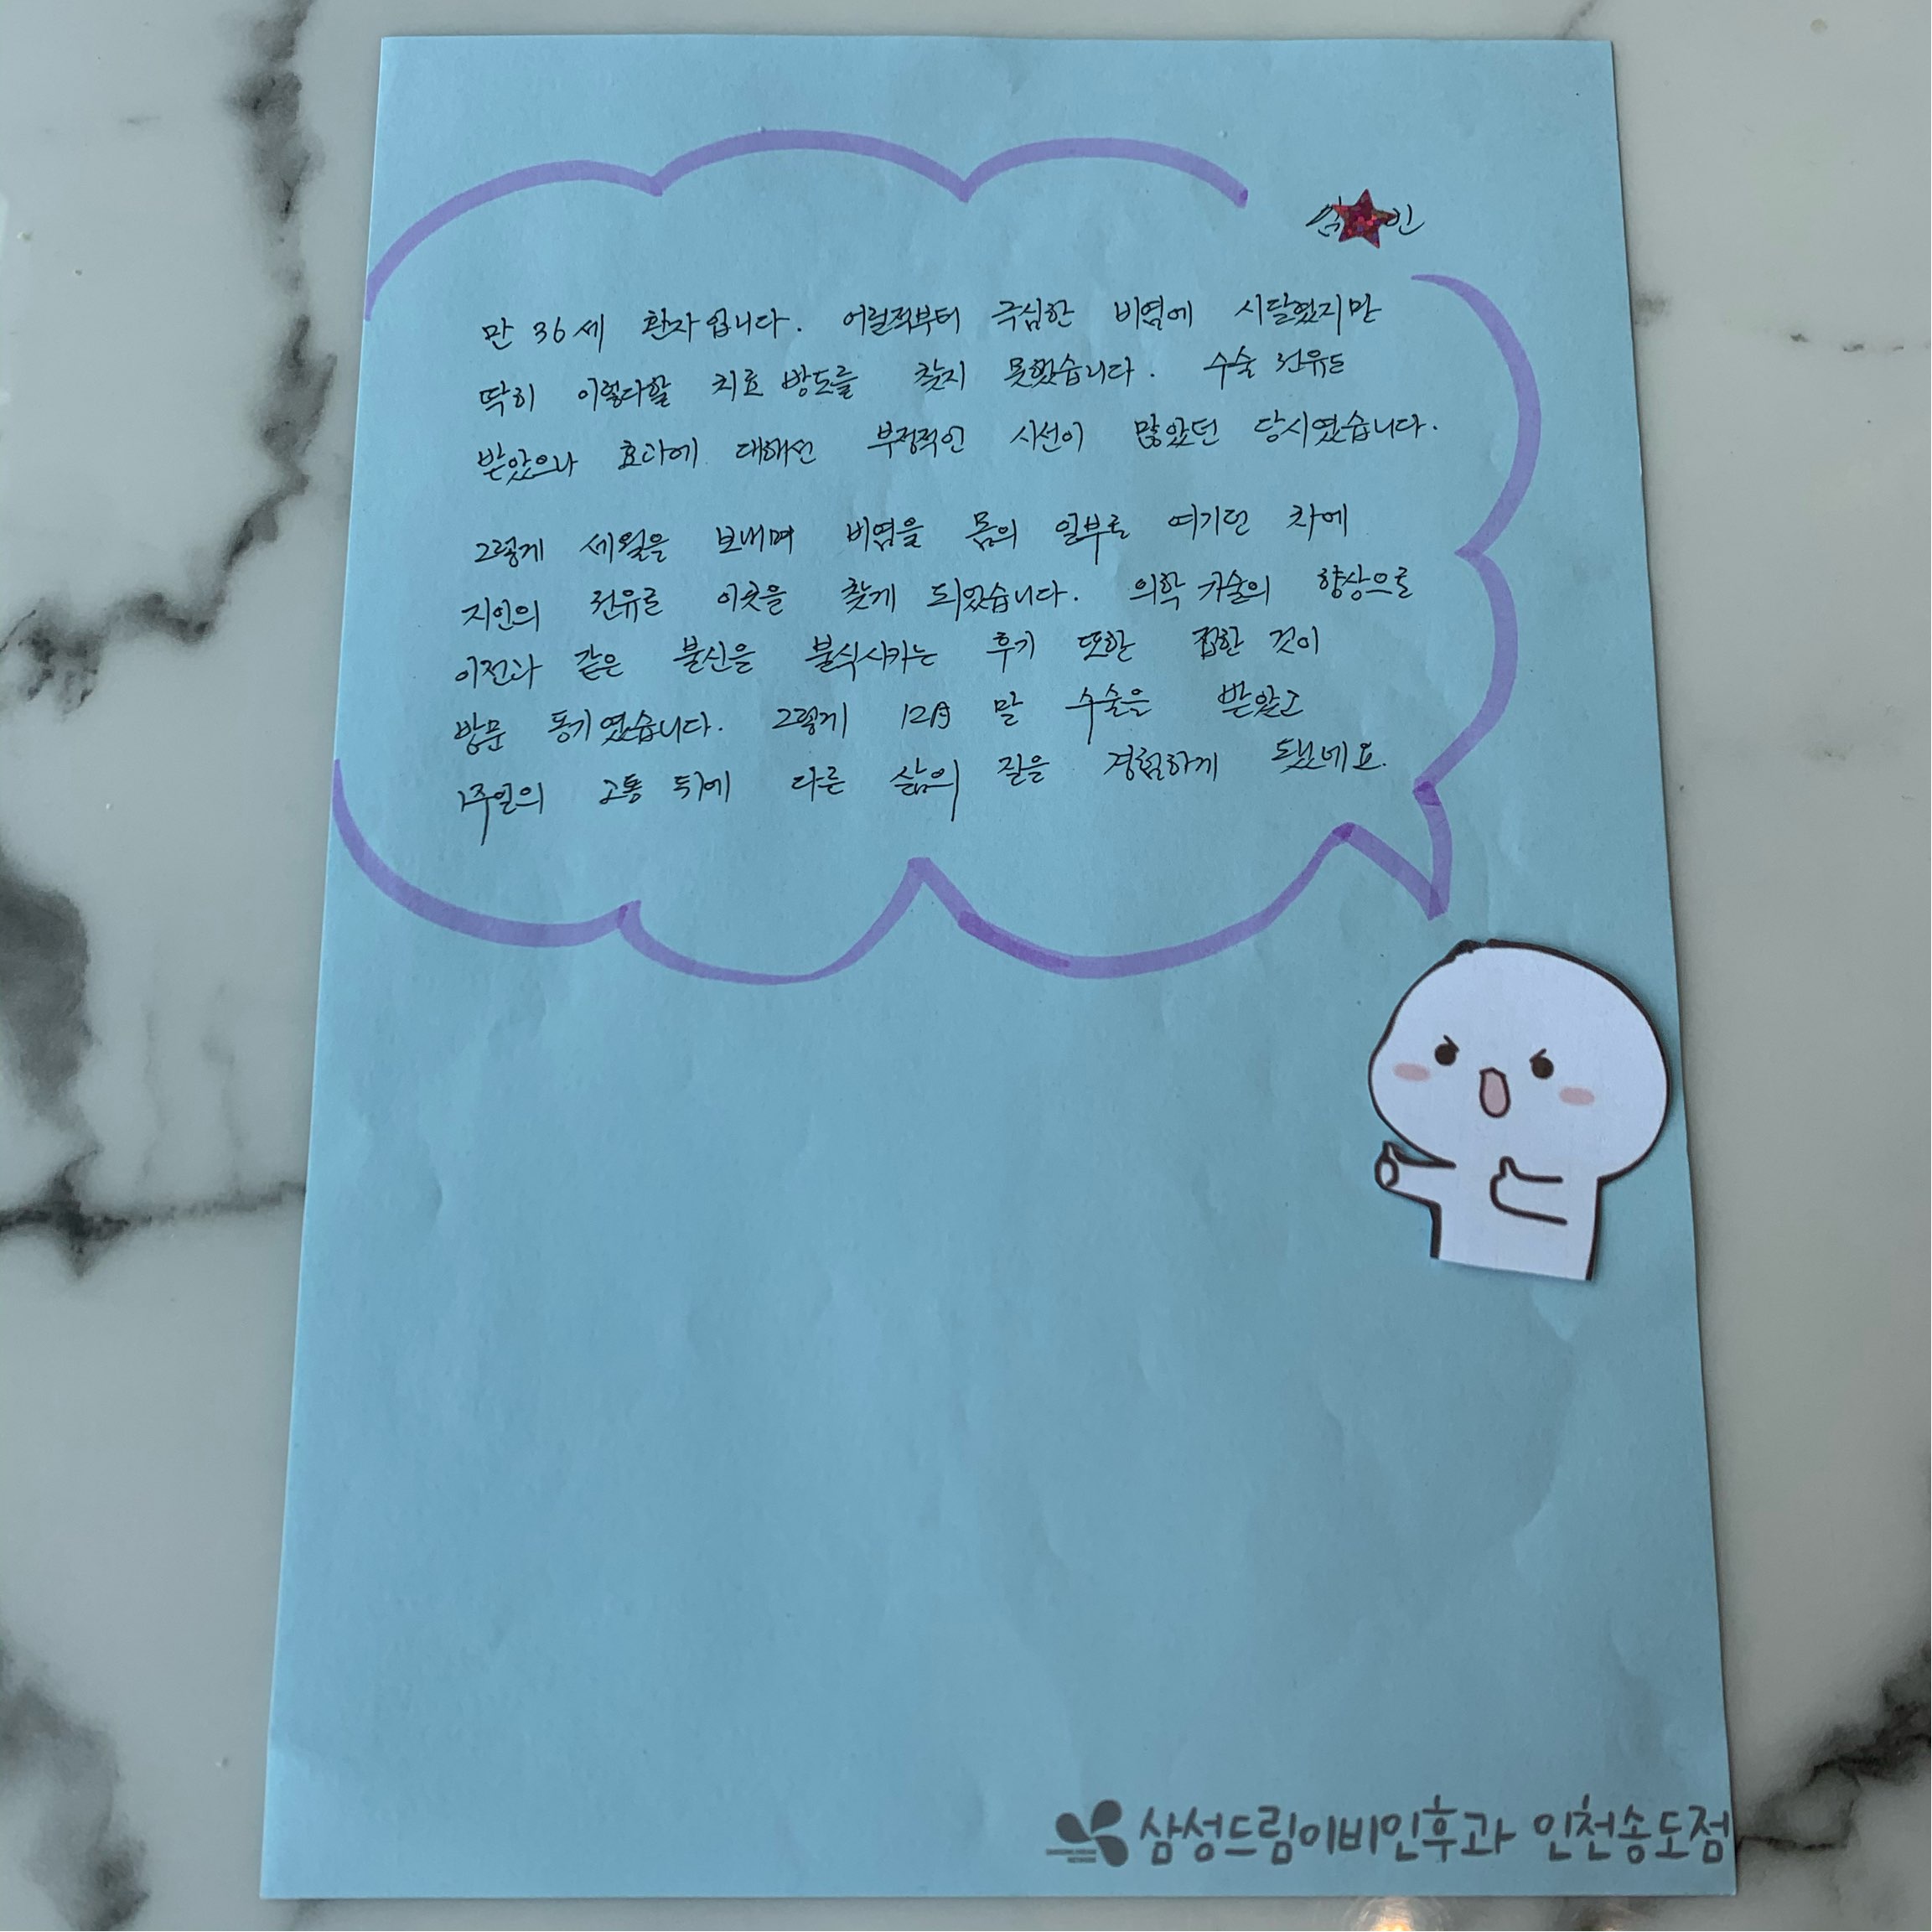 빈
만 36세 환자입니다. 어릴적부터 극심한 비염에 시달렸지만
딱히 이렇다할 치료 방도를 찾지 못했습니다. 수술 권유도
받았으나 효과에 대해선 부정적인 시선이 많았던 당시였습니다.
그렇게 세월을 보내며 비염을 몸의 일부로 여기던 차에
지인의 권유로 이곳을 찾게 되었습니다. 의학 기술의 향상으로
이전과 같은 불신을 불식시키는 후기 또한 접한 것이
방문 동기였습니다. 그렇게 12月 말 수술을 받았고
1주일의 고통 뒤에 다른 삶의 질을 경험하게 됐네요.
삼성드림이비인후과 인천송도점